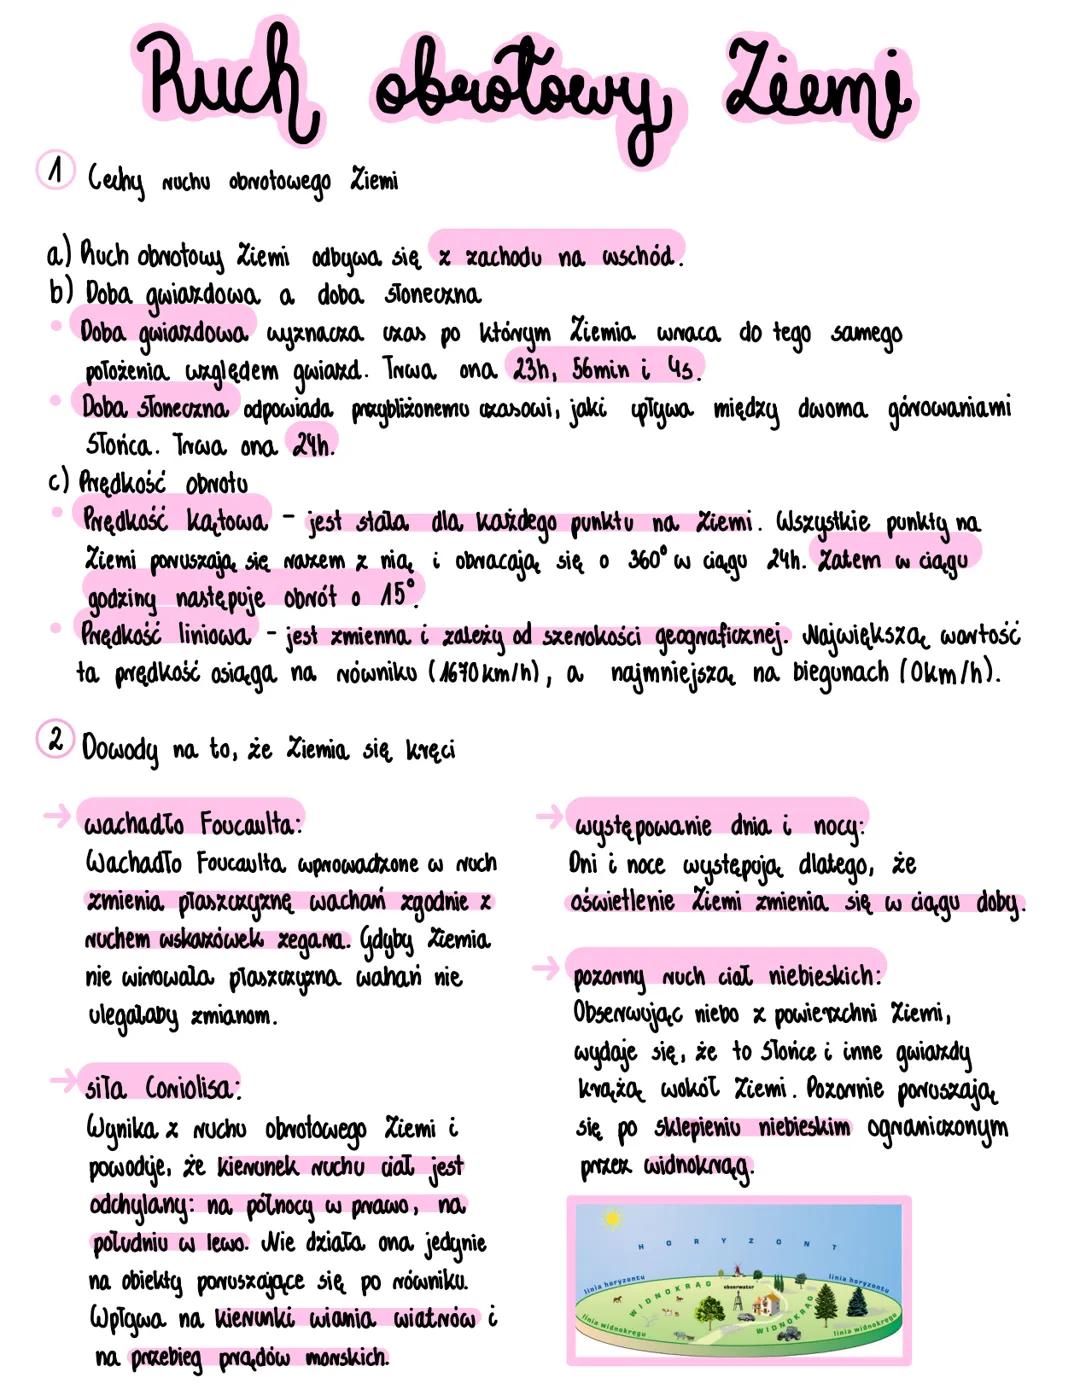 Ruch obrotowy Ziemi
1 Cechy ruchu obrotowego Ziemi
a) Ruch obrotowy Ziemi odbywa się z zachodu na wschód.
b) Doba gwiazdowa a doba słoneczna
• Doba gwiazdowa wyznacza czas po którym Ziemia wraca do tego samego
położenia względem gwiazd. Trwa ona 23h, 56min i 4s.
• Doba słoneczna odpowiada przybliżonemu czasowi, jaki upływa między dwoma górowaniami
Słońca. Trwa ona 24h.
c) Prędkość obrotu
• Prędkość kątowa - jest stała dla każdego punktu na Ziemi. Wszystkie punkty na
Ziemi poruszają się razem z nią i obracają się o 360° w ciągu 24h. Zatem w ciągu
godziny następuje obrót o 15°.
• Prędkość liniowa - jest zmienna i zależy od szerokości geograficznej. Największą wartość
ta prędkość osiąga na równiku (1670km/h), a najmniejszą na biegunach (0km/h).
2 Dowody na to, że Ziemia się kręci
→ wachadło Foucaulta:
Wachadło Foucaulta wprowadzone w ruch
zmienia płaszczyznę wachań zgodnie z
ruchem wskazówek zegara. Gdyby Ziemia
nie wirowała płaszczyzna wahań nie
ulegałaby zmianom.
→ siła Coriolisa:
Wynika z ruchu obrotowego Ziemi i
powoduje, że kierunek ruchu ciał jest
odchylany: na północy w prawo, na
południu w lewo. Nie działa ona jedynie
na obiekty poruszające się po równiku.
Wpływa na kierunki wiania wiatrów i
na przebieg prądów morskich.
→ występowanie dnia i nocy:
Dni i noce występują dlatego, że
oświetlenie Ziemi zmienia się w ciągu doby.
→ pozorny ruch ciał niebieskich:
Obserwując niebo z powierzchni Ziemi,
wydaje się, że to Słońce i inne gwiazdy
krążą wokół Ziemi. Pozornie poruszają
się po sklepieniu niebieskim ograniczonym
przez widnokrąg.
HORYZONT
linia horyzontu
linia horyzontu
obserwator
WIDNOKRĄG
WIDNOKRĄG
linia widnokręgu
linia widnokręgu